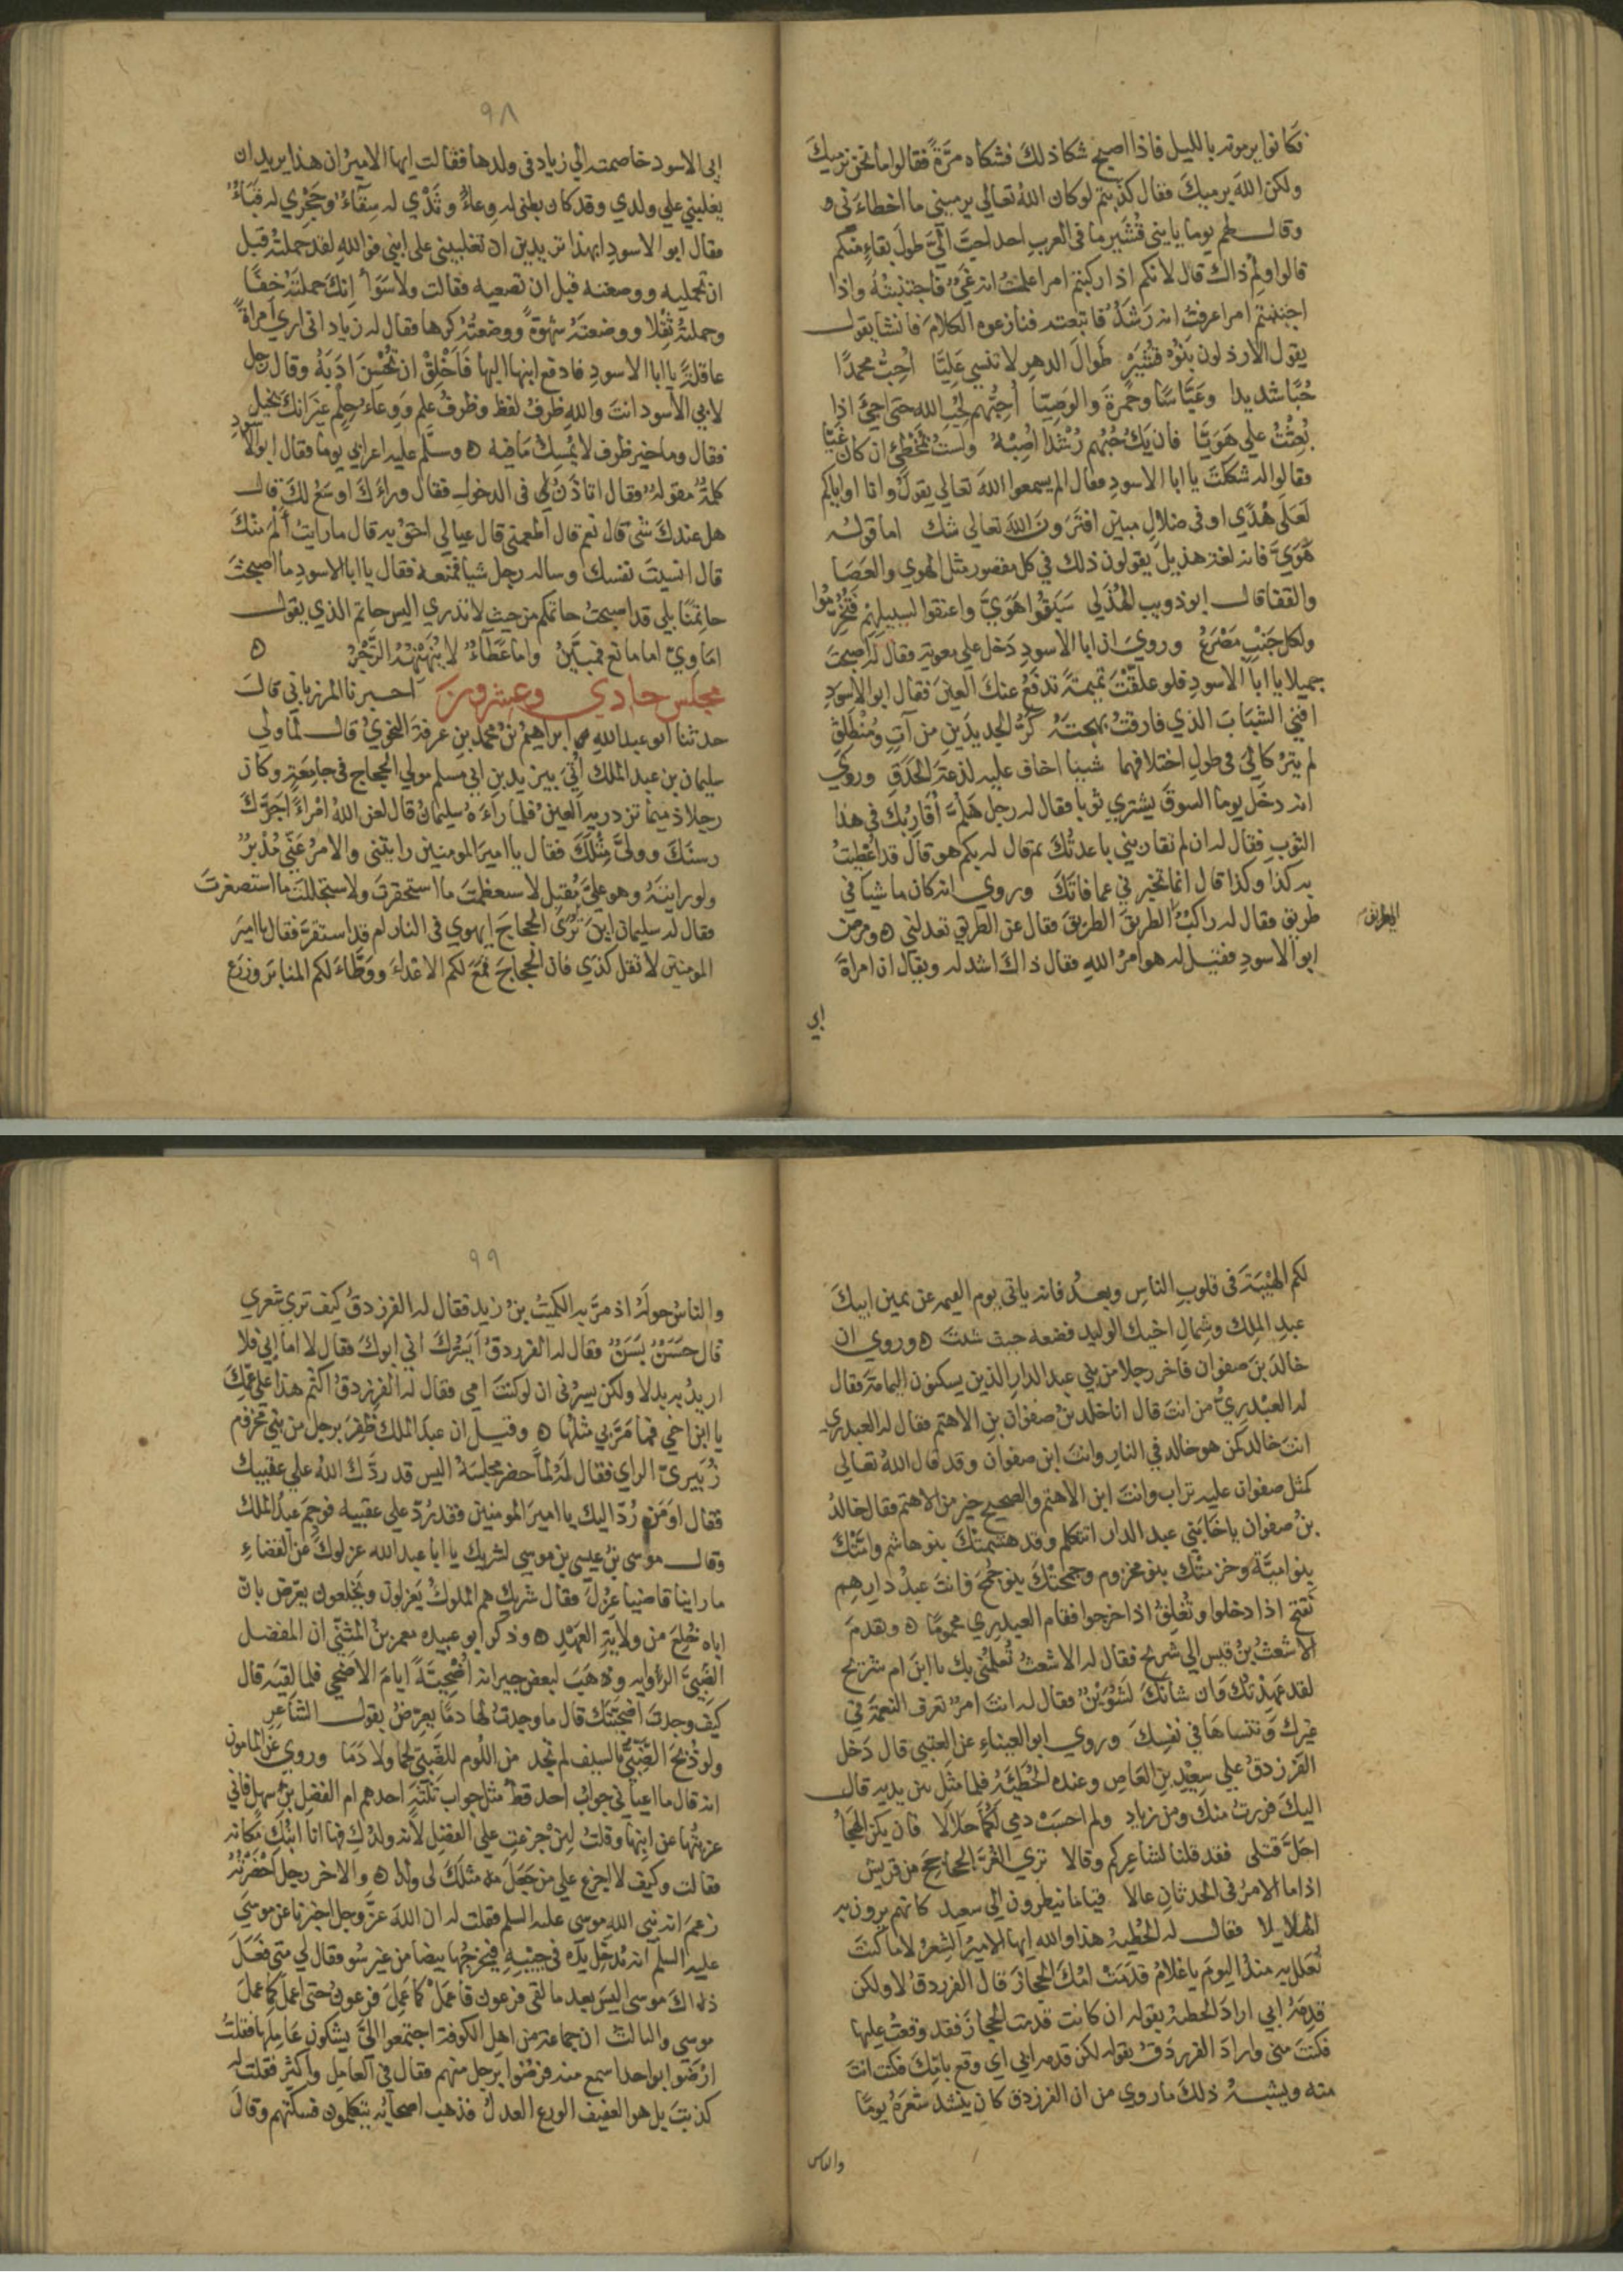 فكانوا يرمونه بالليل فاذا اصبح شكا ذلك فشكاه مرّةً فقالوا ما نحن نرميك
ولكن اللهَ يرميكَ فقال كذبتم لو كان اللهُ تعالي يرميني ما اخطاءَ ني و
وقال لهم يوما يا بني قُشَير ما في العربِ احد احبَّ اليَّ طولَ بقاءٍ منكم
قالوا ولِمَ ذاك قال لانكم اذا ركبتم امرا علمتُ انه غيٌّ فاجتنبتُهُ واذا
اجتنبتم امرا عرفتُ انه رَشَدٌ فاتبعته فنازعوه الكلامَ فانشا يقول
يقول الارذلون بَنُوْ قُشَيْرٍ طَوالَ الدهرِ لا تنسي عَلِيَّا اُحِبُّ محمدًا
حُبَّا شديدا وعَبَّاسًا وحمزةَ والوَصِيّا اُحِبُّهم لِحُبِّ اللهِ حتى اجئَ اذا
بُعِثْتُ علي هَوَيَّا فان يَكُ حُبُّهم رُشْدًا اُصِبْهُ ولستُ بمُخْطِئٍ ان كان غَيّا
وقالوا له شككتَ يا ابا الاسودِ فقال الم يسمعوا اللهَ تعالي يقول وانا او اياكم
لَعَلَى هُدًي او في ضلالٍ مبينٍ افَتَرَونَ اللهَ تعالي شك اما قوله
هَوَيَّ فانه لغة هذيلٍ يقولون ذلك في كل مقصور مثل الهوي والعَصَا
والقفا قال ابو ذويب الهُذَلي سَبَقُوا هَوَيَّ واعنقوا لسبيلهم فَتُخُرِّمُوا
ولكل جَنْبٍ مَصْرَعُ ورويَ ان ابا الاسودِ دَخل علي معوية فقال له اصبحتَ
جميلا يا ابا الاسودِ فلو علقْتَ تميمةً تدفعُ عنكَ العينَ فقال ابو الاسودِ
افني الشبابَ الذي فارقتُ بهجتَهُ كَرُّ الجديدَينِ من آتٍ ومُنْطَلِقِ
لم يتركا لي في طولِ اختلافهما شيئا اخاف عليه لذعةَ الحَدَقِ وروي
انه دخَل يوما السوقَ يشتري ثوبا فقال له رجل هَلُمَّ اُقَارِبُكَ في هذا
الثوبِ فقال له ان لم تقاربني باعدتُكَ ثم قال له بكم هو قال قد اُعْطِيتُ
به كذا وكذا قال انما تخبرني عما فاتَكَ وروي انه كان ماشيا في
طريق فقال له راكبٌ الطريقَ الطريقَ فقال عن الطريقِ تعدلني ه ومرض
ابو الاسودِ فقيل له هو امرُ اللهِ فقال ذاكَ اشد له ويقال ان امراةَ
ابي
٩٨
ابي الاسود خاصمته الي زياد في ولدها فقالت ايها الاميرُ ان هذا يريد ان
يغلبني علي ولدي وقد كان بطني له وِعاءً وثَدْيي له سِقَاءً وحَجْرِي له فِنَاءً
فقال ابو الاسودِ ابهذا تريدين ان تغلبيني على ابني فوالله لقد حملتُهُ قبل
ان تحمليه ووضعته قبل ان تضعيه فقالت ولا سَوَاً اِنكَ حملتَهُ خِفًّا
وحملتُهُ ثِقْلا ووضعتَهُ شهوةً ووضعتُهُ كرها فقال له زياد اني اري امراةً
عاقلةً يا ابا الاسودِ فادفع ابنها اليها فَاَخْلِقْ ان تُحْسِنَ ادَبَهُ وقال رجل
لابي الاسود انتَ واللهِ ظرفُ لفظ وظرفُ علمٍ وَوِعاءُ حِلْمٍ غيرَ انكَ بخيل
فقال وما خير ظرف لا يُمْسِكُ ما فيه ه وسلَّم عليه اعرابي يوما فقال ابو الاسودِ
كلمةٌ مقولةٌ وقال اتاذَنُ لي في الدخول فقال وراءَكَ اوسَعُ لكَ قال
هل عندكَ شئ قال نعم قال اطعمني قال عيالي احقُ به قال ما رايتُ اَلْاَمَ منكَ
قال انسيتَ نفسكَ وساله رجل شيا فمنعه فقال يا ابا الاسودِ ما اصبحتَ
حاتِميًّا بلي قد اصبحتُ حاتمكم من حيث لا تدري اليس حاتم الذي يقول
اماويَّ اما مانع فمُبَيَّنٌ واما عَطَآءٌ لا يُنَهْنِهُهُ الزَّجْرُ ه
مجلس حادي وعشرون اخبرنا المرزباني قال
حدثنا ابو عبد الله ابراهيمُ بنُ محمد بن عرفة النحويُ قال لما ولي
سليمان بن عبد الملك اُتِيَ بيزيد بن ابي مسلم مولي الحجاج في جامعةٍ وكان
رجلا ذميما تزدريه العينُ فلما رآءَهُ سليمانُ قال لعن اللهُ امْرَاءً اجرَّكَ
رسنَكَ وولىَّ مِثْلَكَ فقال يا اميرَ المومنين رايتني والامرُ عَنِّي مُدْبِرٌ
ولو رايتَهُ وهو عليَّ مُقبِل لاستعظمتَ ما استحقرتَ ولاستجللتَ ما استصغرتَ
فقال له سليمان اينَ تُرَى الحجاجَ ايهوي في النار ام قد استقرَّ فقال يا اميرَ
المومنين لا تقل كذي فان الحجاجَ قَمَعَ لكم الاعداءَ ووَطَّاءَ لكم المنابرَ وزرع
لكم الهَيْبَةَ في قلوبِ الناسِ وبعدُ فانه ياتي يوم القيمه عن يمين ابيكَ
عبدِ الملِك وشِمالِ اخيك الوليد فضعه حيث شئتَ ه وروي ان
خالدَ بنَ صفوان فاخر رجلا من بني عبد الدارِ الذين يسكنون اليمامة فقال
له العَبْدِريُّ من انتَ قال انا خلد بنُ صفوان بنِ الاهتم فقال له العبدري
انتَ خالد كمن هو خالد في النار وانتَ ابن صفوانَ وقد قال اللهُ تعالى
كمثل صفوان عليه تراب وانتَ ابن الاهتم والصحيح خير من الاهتم فقال خالدُ
بنُ صفوان يا اخا بَني عبد الدار اتتكلم وقد هشمتكَ بنو هاشم وامَّتْكَ
بنو اميَّةَ وخزمتْكَ بنو مخزوم وجمحتْكَ بنو جُمَحَ فانتَ عبدُ دارِهِم
تفتح اذا دخلوا وتُغلِقُ اذا خرجوا فقام العبدري محمومًا ه وتقدمَ
الاشعثُ بنُ قيس الي شُريحٍ فقال له الاشعثُ تُعلمُني بك يا ابنَ ام شريح
لقد عهدْتُكَ وان شانَكَ لشُوَيْنٌ فقال له انتَ امرٌ تعرف النعمةَ في
غيرك وتنساهَا في نفسِكَ وروي ابو العيناءِ عن العتبي قال دَخل
الفرزدقُ على سعيدِ بنِ العَاصِ وعنده الحُطَيئَهُ فلما مثل بين يديه قال
اليكَ فررتُ منكَ ومن زيادٍ ولم احسَبْ دمي لكُما حَلالَا فان يكن الهجاُ
احَلَّ قتلى فقد قلنا لشاعِركم وقالا تري الغُرَّ الجحاجحَ من قريش
اذا ما الامرُ في الحدثانِ عالا قياما ينظرون الي سعيد كانهم يرون به
الهلالا فقال له الحُطَيه هذا والله ايها الاميرُ الشِعرُ لا ما كنتَ
تُعلَل به منذ اليومَ يا غلامُ قَدمَتْ امُكَ الحجازَ قال الفرزدقُ لا ولكن
قدِمَهُ ابي ارادَ الحطيهُ بقوله ان كانت قدمت الحجازَ فقد وقعتُ عليها
فكنتَ منى وارادَ الفرزدَقُ بقوله لكن قدمه ابي اي وقع بامِّكَ فكنتَ انتَ
منه ويشبهُ ذلِكَ ما روي من ان الفرزدق كان ينشدُ شعرَهُ يومًا
والناس
٩٩
والناسُ حولَهُ اذ مرَّ به الكميتُ بنُ زيد فقال له الفرزدقُ كيف تري شعري
قال حَسَنٌ بَسَنٌ فقال له الفرزدقُ اَيَسُرُّكَ اني ابوكَ فقال لا اما ابي فلا
اريدُ به بدلا ولكن يسرُني ان لو كنتَ امي فقال له الفرزدقُ اكتُم هذا على عَمِّكَ
يا ابنَ اخي فما مَرَّ بي مثلُها ه وقيل ان عبدَ الملك ظَفِرَ برجل من بني مخزوم
زُبَيريّ الراي فقال لهُ لمّا حضر مجلسَهُ اليس قد ردَّكَ اللهُ علي عقبيكَ
فقال اوَمَن رُدّ اليك يا اميرَ المومنين فقد رُدَّ علي عقبيه فوجِمَ عبدُ الملك
وقال موسي بنُ عيسي بنِ موسي لشريك يا ابا عبد الله عزلوكَ عن القضاءِ
ما راينا قاضيا عُزِلَ فقال شريك هم الملوكُ يَعزلون ويُخلعون يعرّض بانّ
اباه خُلِعَ من ولايةِ العَهْدِ ه وذكر ابو عبيده معمر بنُ المثنّي ان المفضل
الضبيَّ الرأوايه وهَبَ لبعض جيرانه اُضْحِيَّةً ايامَ الاضحي فلما لقيَه قال
كيف وجدتَ اضحيَّتَكَ قال ما وجدتُ لها دمًا يعرِّضُ بقول الشاعرِ
ولو ذُبِحَ الضَّبِّيُّ بالسيف لم تجد من اللُوم للضَّبيِّ لحما ولا دَمَا وروي عن المامون
انه قال ما اعياني جوابُ احد قطُّ مثل جواب ثلثةٍ احدهم ام الفضل بن سهل فاني
عزيتُها عن ابنِها وقلتُ لئن جزعتِ علي الفضل لانه ولدُكِ فها انا ابنُكِ مكانَه
فقالت وكيف لا اجزع علي من جعلَ مثلَكَ لي ولدا ه والاخر رجل اَحْضَرْتُهُ
زعمَ انه نبي اللهِ موسي عليه السلم فقلت له ان اللهَ عزَّ وجل اخبرنا عن موسَي
عليه السلم انه يُدخِل يدَه في جيبِه فيخرجُها بيضا من غير سُو فقال لي متى فعَلَ
ذاكَ موسى اليس بعد ما لقي فرعون فاعمَلْ كما عَمِلَ فرعونُ حتى اعمل كما عمِلَ
موسي والثالثُ ان جماعة من اهل الكوفة اجتمعوا اليَّ يشكون عامِلها فقلتُ
ارْضَوا بواحد اسمع منه فرضُوا برجل منهم فقال في العاملِ واكثر فقلت له
كذبتَ بل هو العفيف الورع العدلُ فذهب اصحابُه يتكلمون فسكّتهم وقال